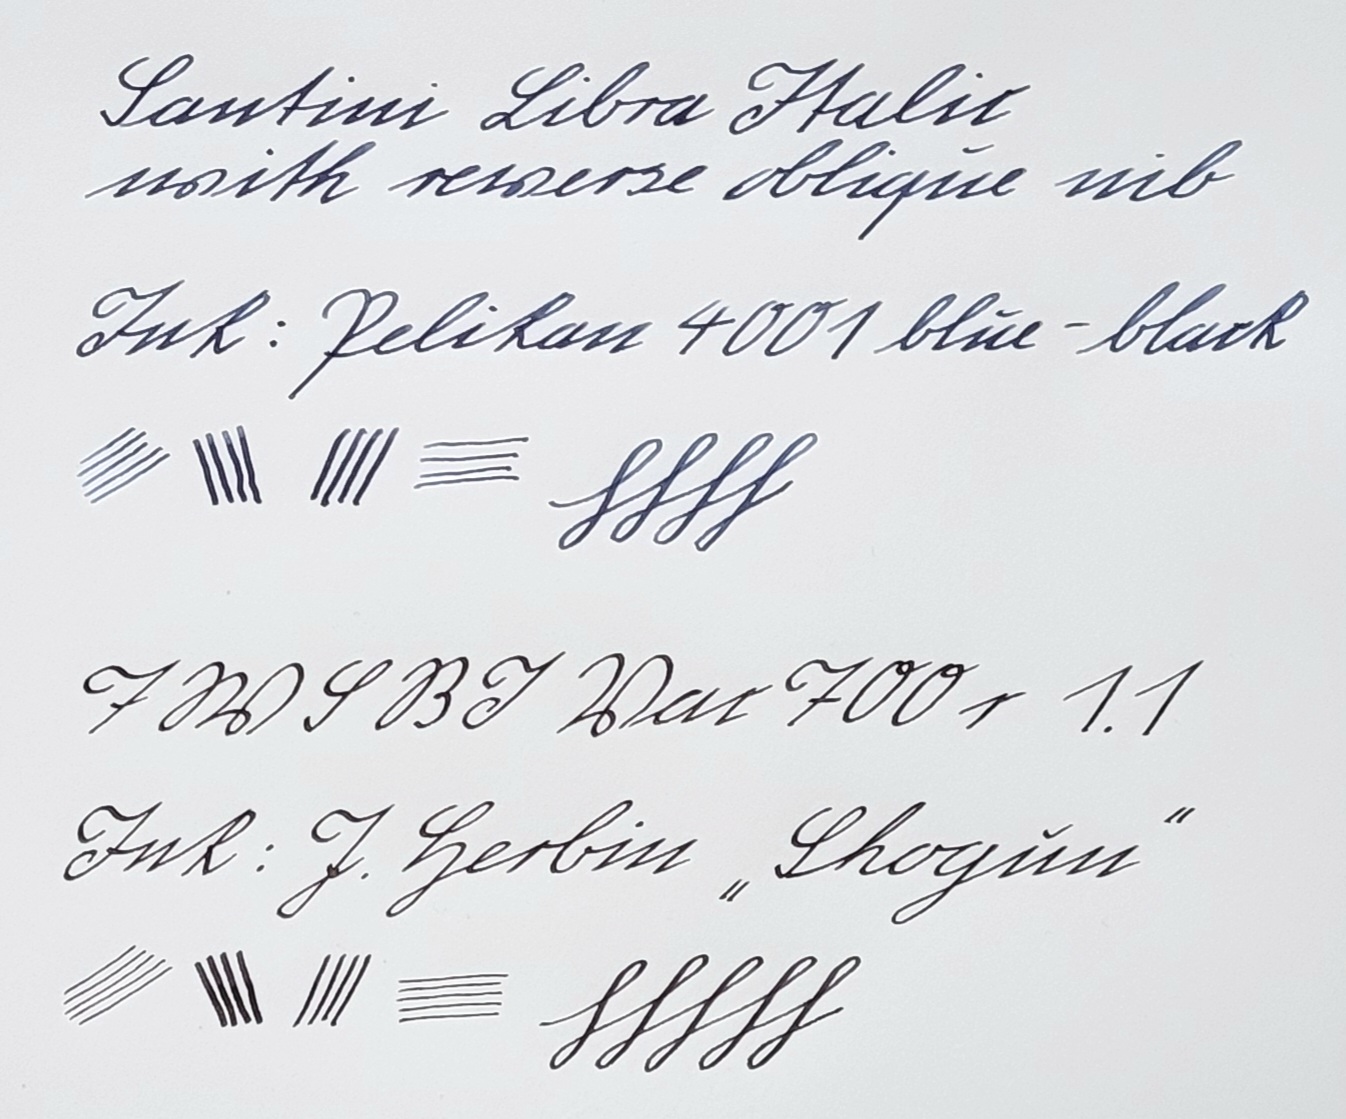 Santini Libra Italic
with reverse oblique nib
Ink: Pelikan 4001 blue-black
TWSBI Vac 700 r 1.1
Ink: J. Herbin „Shogun“